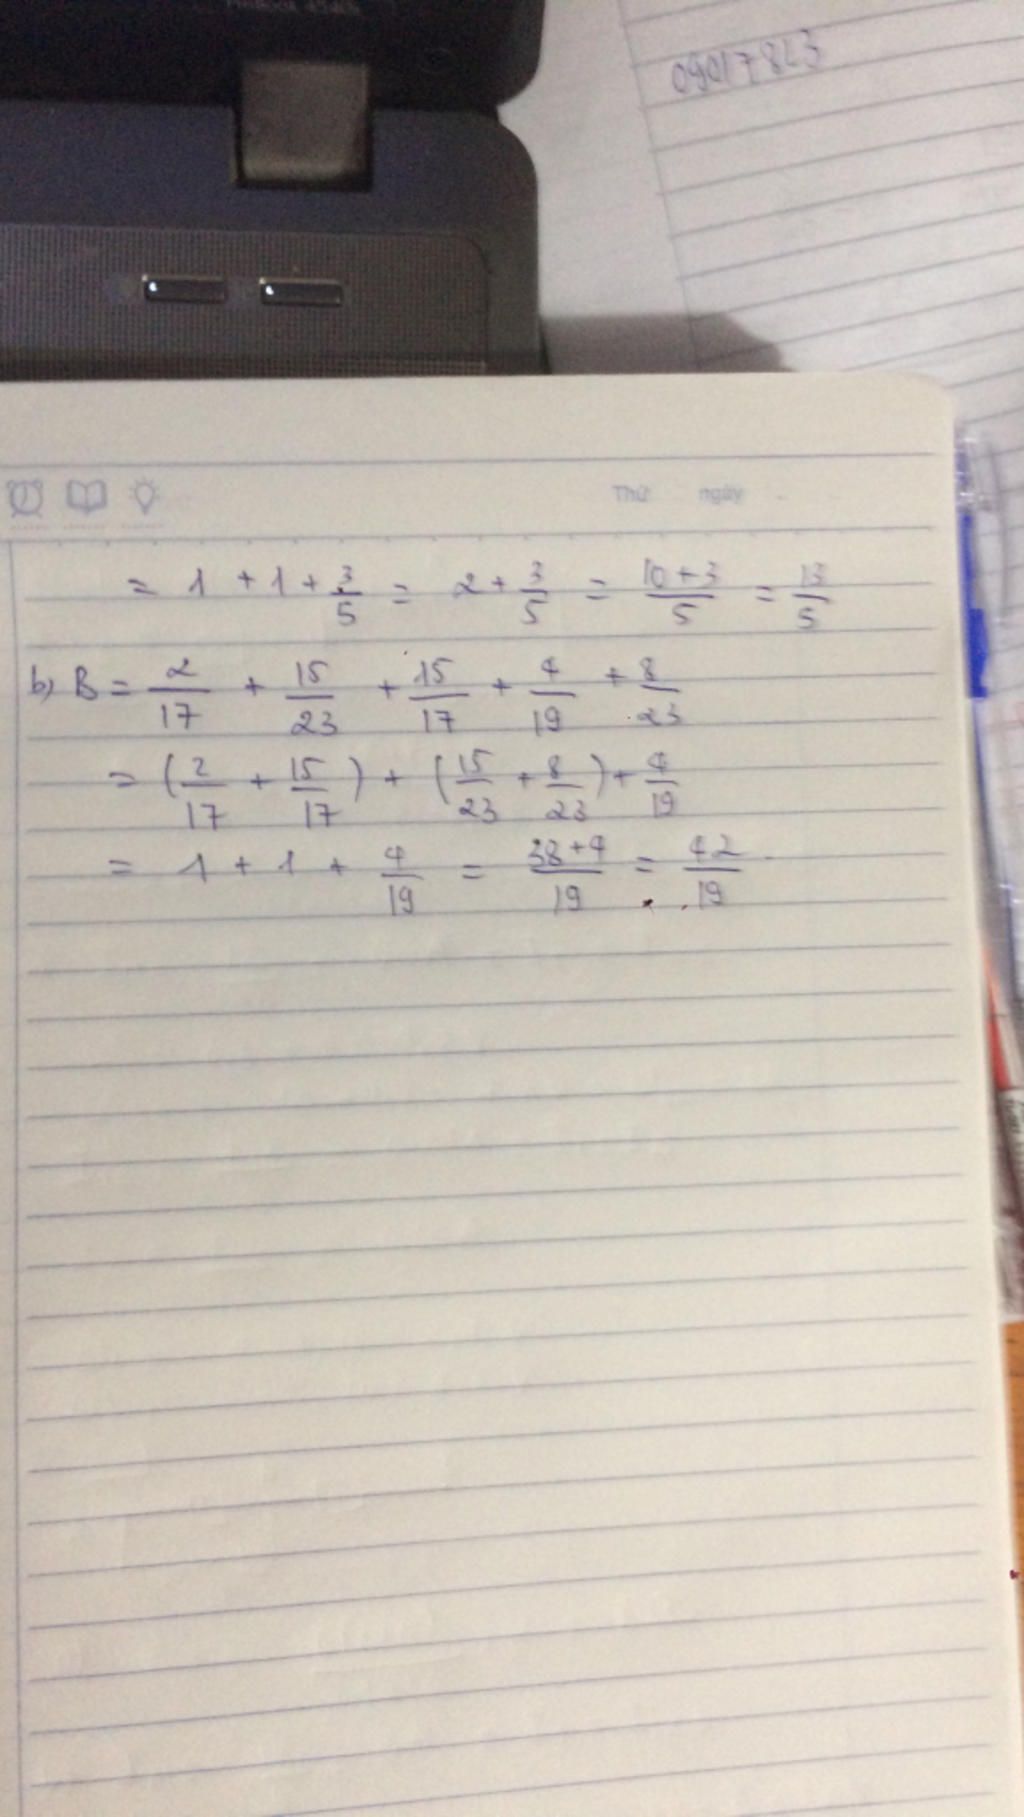 Thứ ngày
= 1 + 1 + 3/5 = 2 + 3/5 = (10+3)/5 = 13/5
b) B = 2/17 + 15/23 + 15/17 + 4/19 + 8/23
= (2/17 + 15/17) + (15/23 + 8/23) + 4/19
= 1 + 1 + 4/19 = (38+4)/19 = 42/19